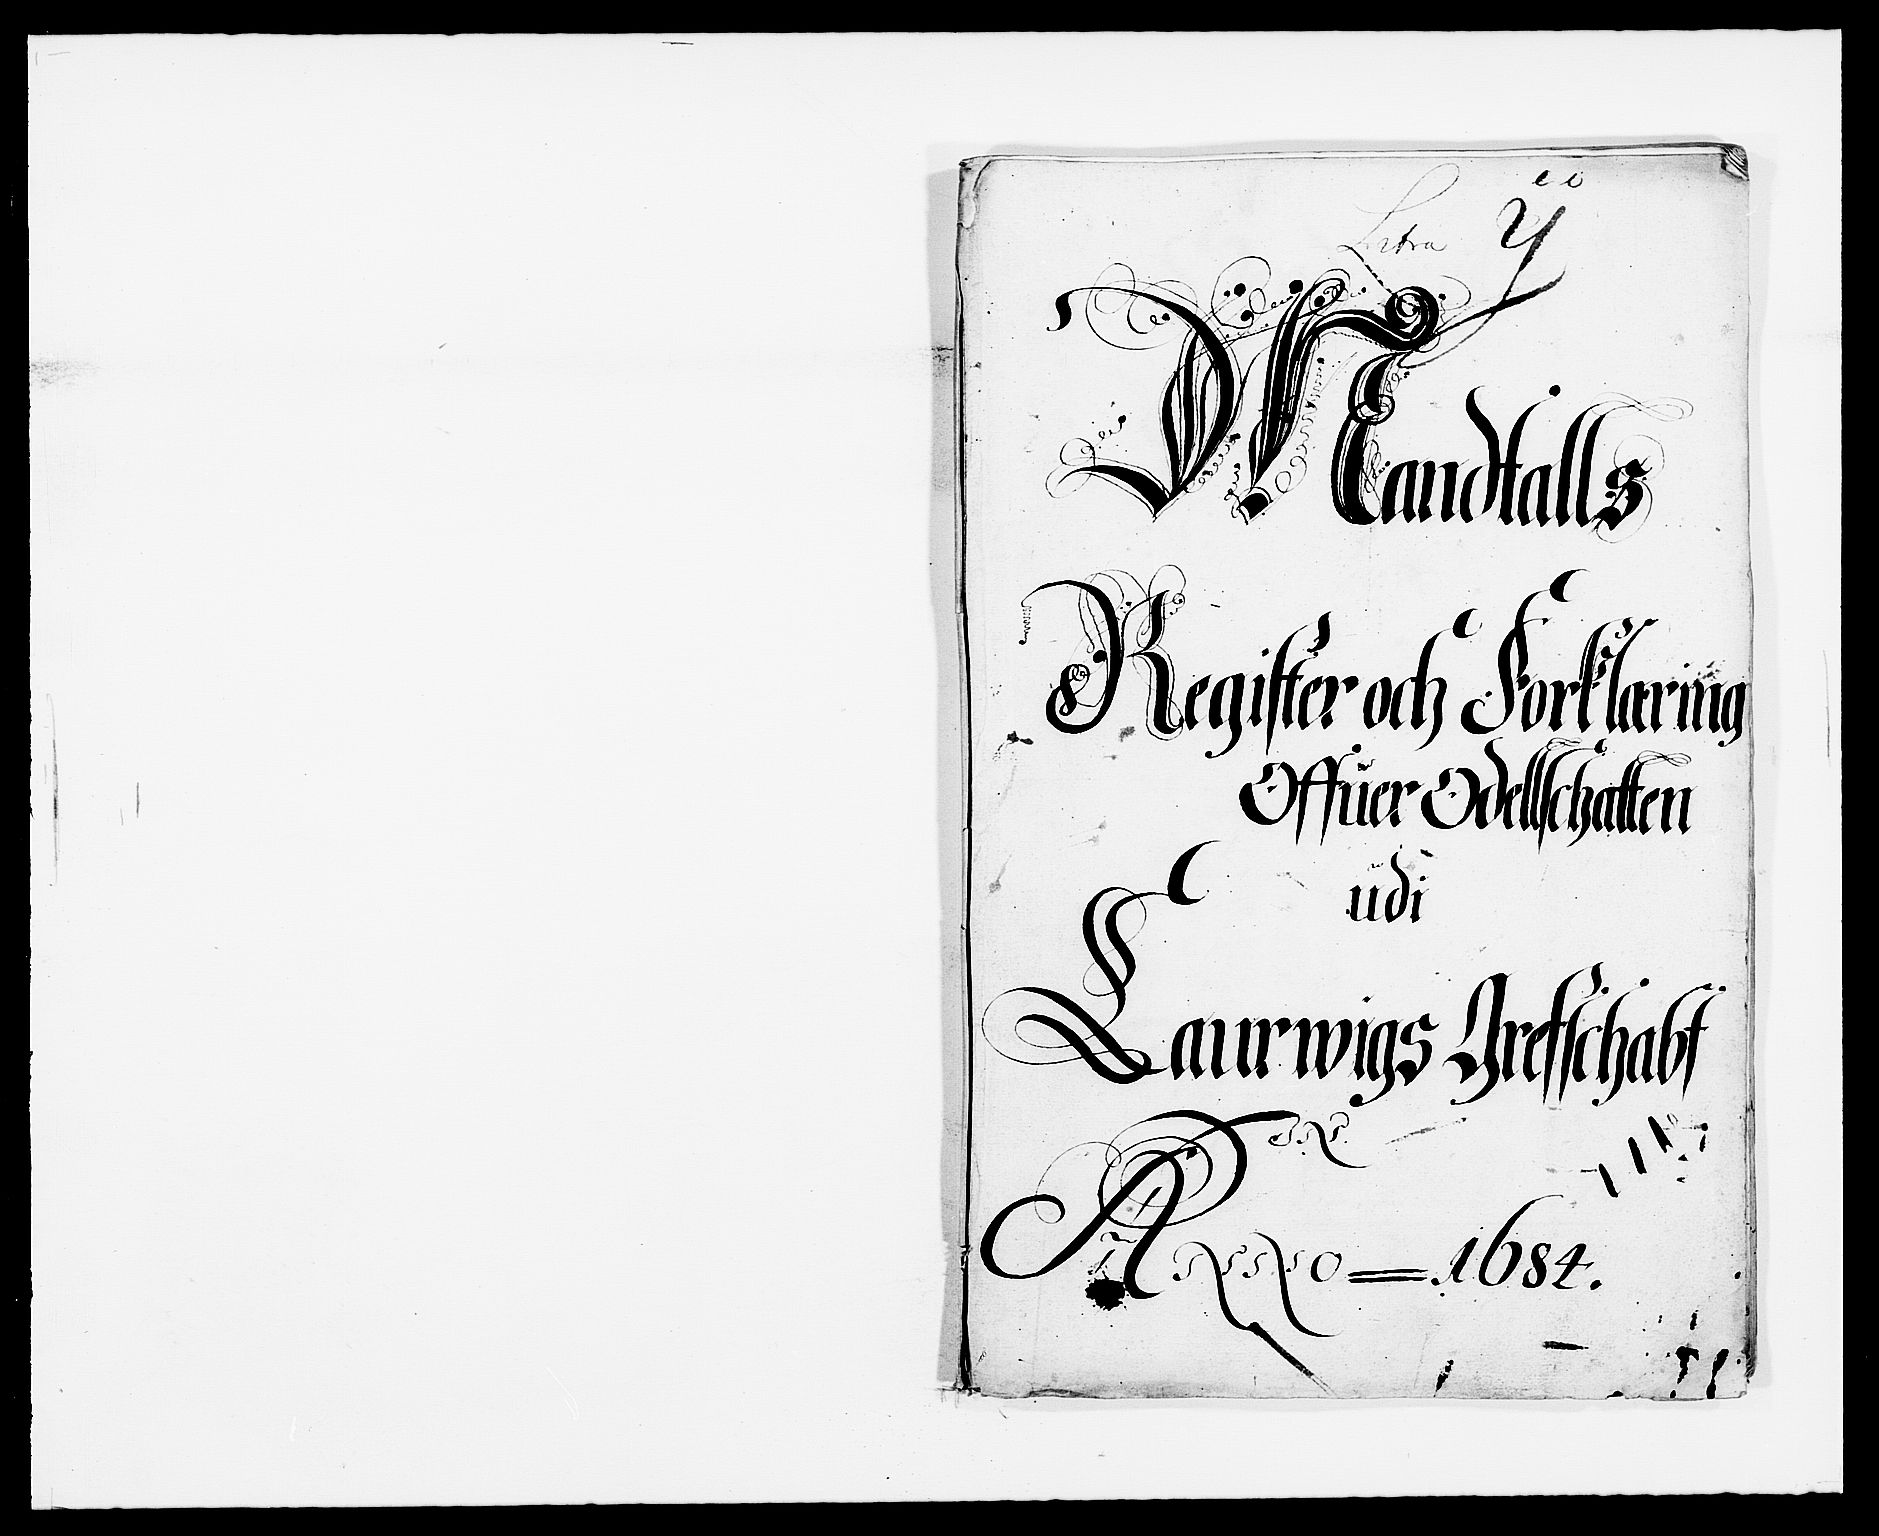 Litra Y
Mandtalls
Register och Forklaring
Offuer Odellschatten
udi
Laurwigs Grefschabt
Pro
Anno 1684.